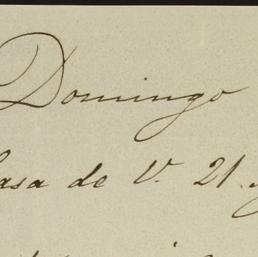 Domingo
casa de V. 21 y